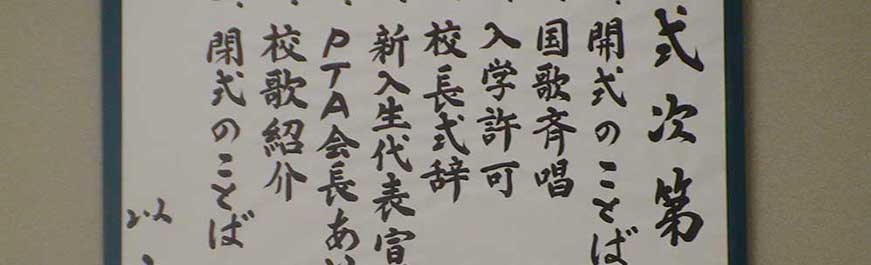 式次第
・開式のことば
・国歌斉唱
・入学許可
・校長式辞
・新入生代表宣
・PTA会長あい
・校歌紹介
・閉式のことば
以